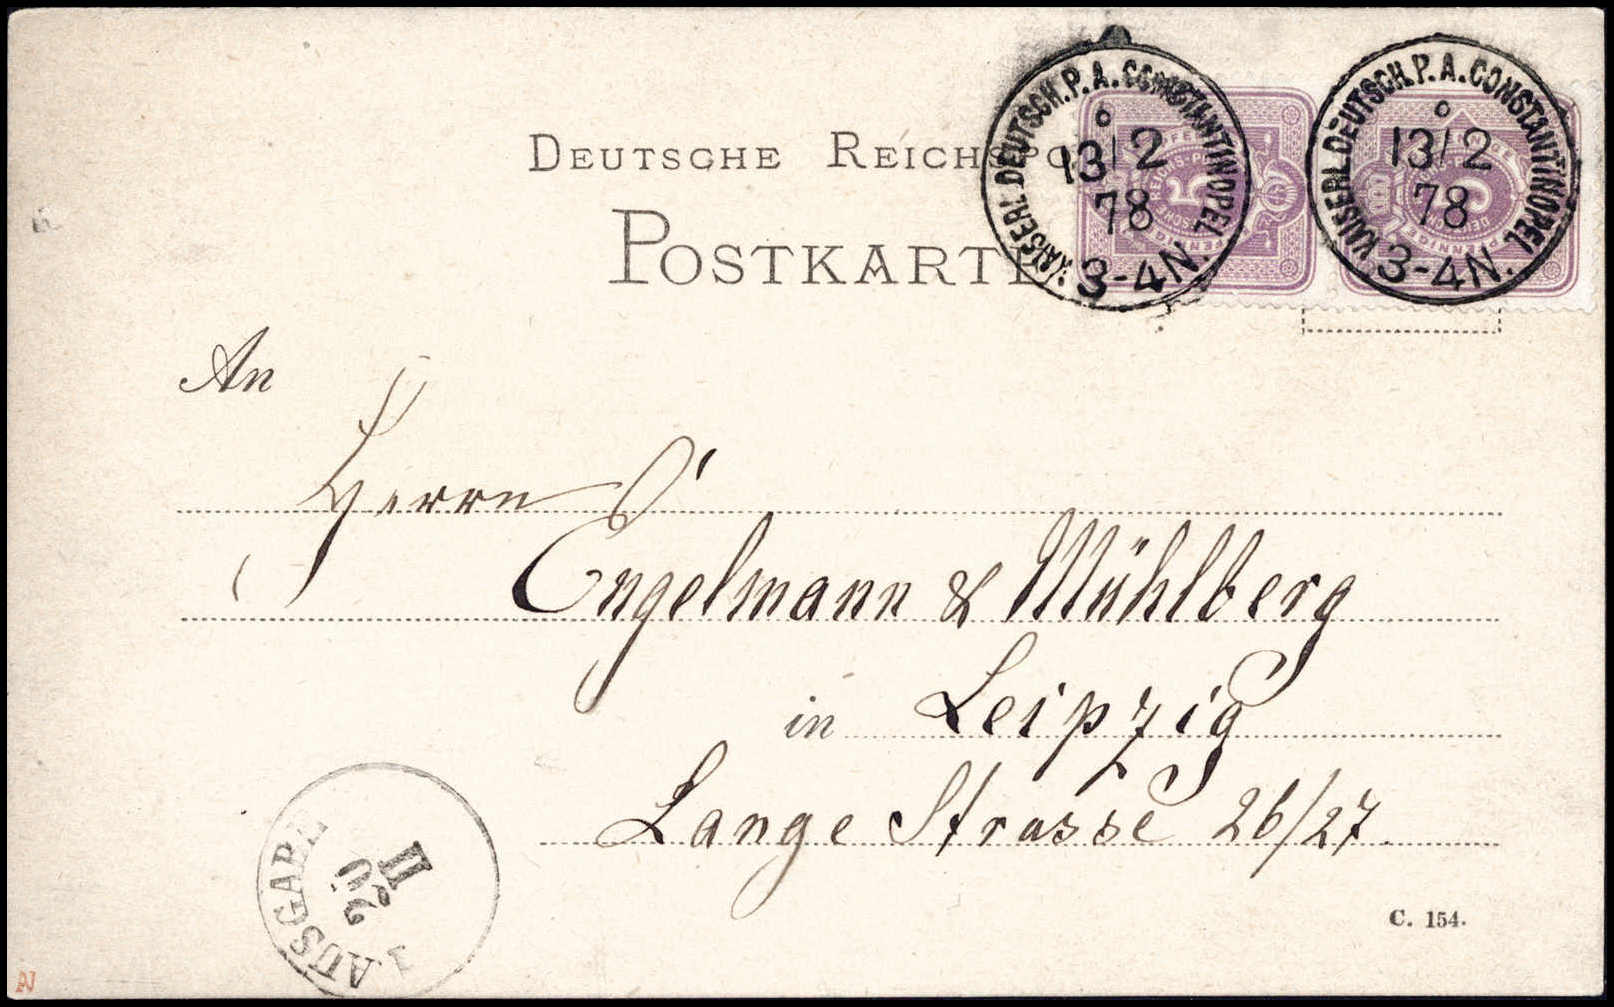 DEUTSCHE REICHSPO
POSTKARTE
KAISERL. DEUTSCH. P. A. CONSTANTINOPEL
13/2
78
3-4N.
KAISERL. DEUTSCH. P. A. CONSTANTINOPEL
13/2
78
3-4N.
5
An
Herrn
Engelmann & Mühlberg
in Leipzig
Lange Strasse 26/27.
AUSGABE
20
II
C. 154.